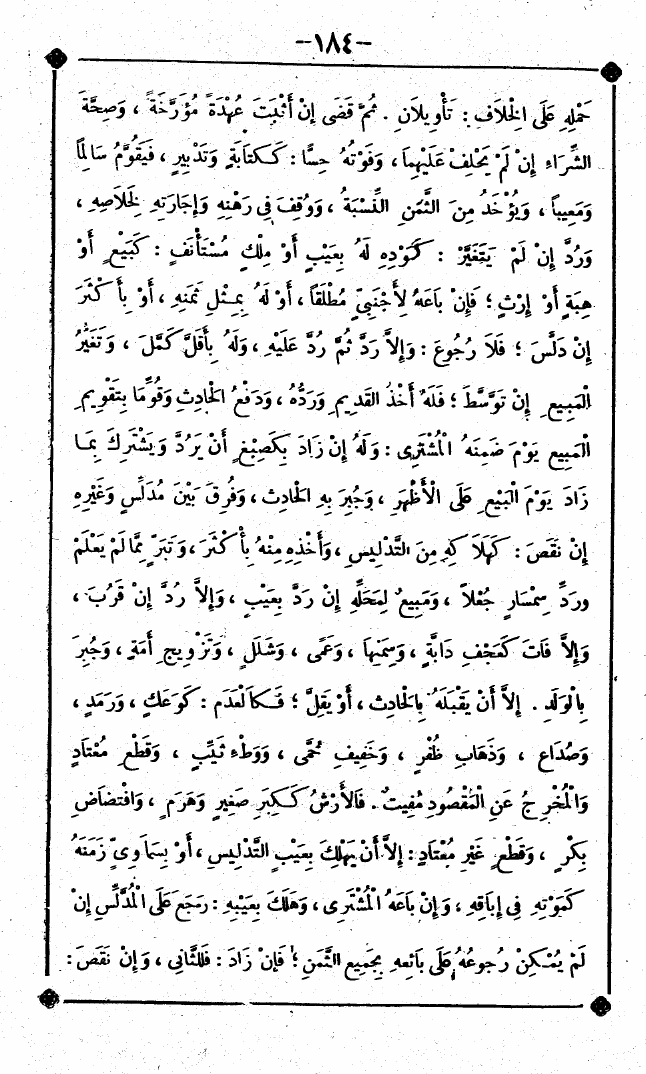 -١٨٤-
حَمْلِهِ عَلَى الْخِلَافِ: تَأْوِيلَانِ. ثُمَّ قَضَى إنْ أَثْبَتَ عُهْدَةً مُؤَرَّخَةً، وَصِحَّةَ
الشِّرَاءِ إنْ لَمْ يَحْلِفْ عَلَيْهِمَا، وَفَوْتُهُ حِسًّا: كَكِتَابَةٍ وَتَدْبِيرٍ، فَيُقَوَّمُ سَالِمًا
وَمَعِيباً، وَيُؤْخَذُ مِنَ الثَّمَنِ النِّسْبَةُ، وَوُقِفَ فِي رَهْنِهِ وَإِجَارَتِهِ لِخَلَاصِهِ،
وَرُدَّ إِنْ لَمْ يَتَغَيَّرْ: كَعَوْدِهِ لَهُ بِعَيْبٍ أَوْ مِلْكٍ مُسْتَأْنَفٍ: كَبَيْعٍ أَوْ
هِبَةٍ أَوْ إِرْثٍ؛ فَإِنْ بَاعَهُ لِأَجْنَبِيٍّ مُطْلَقاً، أَوْ لَهُ بِمِثْلِ ثَمَنِهِ، أَوْ بِأَكْثَرَ
إِنْ دَلَّسَ؛ فَلَا رُجُوعَ: وَإِلاَّ رَدَّ ثُمَّ رُدَّ عَلَيْهِ، وَلَهُ بِأَقَلَّ كَمَّلَ، وَتَغَيُّرُ
الْمَبِيعِ إِنْ تَوَسَّطَ؛ فَلَهُ أَخْذُ القَدِيمِ وَرَدُّهُ، وَدَفْعُ الْحَادِثِ وَقُوِّمَا بِتَقْوِيمِ
الْمَبِيعِ يَوْمَ ضَمِنَهُ الْمُشْتَرِي: وَلَهُ إِنْ زَادَ بِكَصِبْغٍ أَنْ يَرُدَّ وَيَشْتَرِكَ بِمَا
زَادَ يَوْمَ الْبَيْعِ عَلَى الْأَظْهَرِ، وَجُبِرَ بِهِ الْحَادِثُ، وَفُرِقَ بَيْنَ مُدَلِّسٍ وَغَيْرِهِ
إِنْ نَقَصَ: كَهَلَاكِهِ مِنَ التَّدْلِيسِ، وَأَخْذِهِ مِنْهُ بِأَكْثَرَ، وَتَبَرٍّ مِمَّا لَمْ يَعْلَمْ
ورَدِّ سِمْسَارٍ جُعْلاً، وَمَبِيعٌ لِمَحَلِّهِ إِنْ رَدَّ بِعَيْبٍ، وَإِلاَّ رُدَّ إِنْ قَرُبَ،
وَإِلاَّ فَاتَ كَعَجَفِ دَابَّةٍ، وَسِمَنِهَا، وَعَمًى، وَشَلَلٍ، وَتَزْوِيجِ أَمَةٍ، وَجُبِرَ
بِالْوَلَدِ. إِلاَّ أَنْ يَقْبَلَهُ بِالْحَادِثِ، أَوْ يَقِلَّ؛ فَكَالْعَدَمِ: كَوَعَكٍ، وَرَمَدٍ،
وَصُدَاعٍ، وَذَهَابِ ظُفْرٍ، وَخَفِيفِ حُمَّى، وَوَطْءِ ثَيِّبٍ، وَقَطْعٍ مُعْتَادٍ
وَالْمُخْرِجُ عَنِ الْمَقْصُودِ مُفِيتٌ. فَالْأَرْشُ كَكِبَرِ صَغِيرٍ وَهَرَمٍ، وَافْتِضَاضِ
بِكْرٍ، وَقَطْعٍ غَيْرِ مُعْتَادٍ: إِلاَّ أَنْ يَهْلِكَ بِعَيْبِ التَّدْلِيسِ، أَوْ بِسَمَاوِيٍّ زَمَنَهُ
كَمَوْتِهِ فِي إِبَاقِهِ، وَإِنْ بَاعَهُ الْمُشْتَرِي، وَهَلَكَ بِعَيْبِهِ: رَجَعَ عَلَى الْمُدَلِّسِ إِنْ
لَمْ يُمْكِنْ رُجُوعُهُ عَلَى بَائِعِهِ بِجَمِيعِ الثَّمَنِ؛ فَإِنْ زَادَ: فَلِلثَّانِي، وَإِنْ نَقَصَ: